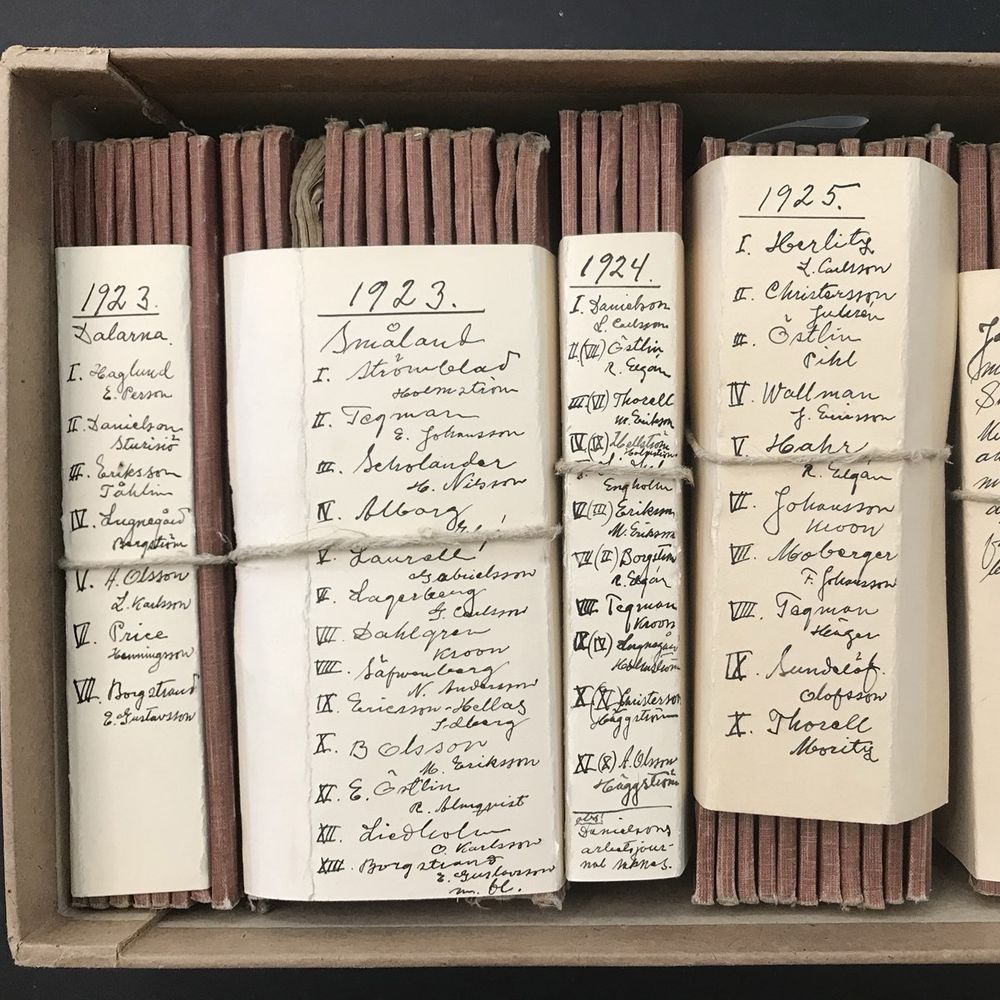 1923.
Dalarna.
I. Haglund
E. Person
II. Danielson
Sturisiö
III. Eriksson
Tåhlin
IV. Lugnegård
Bergström
V. A. Olsson
L. Karlsson
VI. Price
Henningsson
VII. Borgstrand
E. Gustavsson
1923.
Småland
I. Strömblad
Holmström
II. Tegman
E. Johansson
III. Scholander
H. Nilsson
IV. Alborg
V. Laurell!
Gabrielsson
VI. Lagerberg
G. Carlsson
VII. Dahlgren
Kroon
VIII. Säfwenberg
N. Andersson
IX. Ericsson-Hellas
Idberg
X. B Olsson
M. Eriksson
XI. E. Östlin
R. Almqvist
XII. Liedholm
O. Karlsson
XIII. Borgstrand
E. Gustavsson
m. fl.
1924.
I. Danielson
L. Carlsson
II.(VII) Östlin
R. Elgan
III(VI) Thorell
M. Erikson
IV(IX) Hellström
Holmström
Engholm
VI(III) Erikson
M. Eriksson
VII(II) Borgström
R. Elgan
VIII Tegman
Kroon
IX(IV) Lugnegård
Holmström
X(XI) Christerson
Häggström
XI(X) A. Olsson
Häggström
obs!
Danielsons
arbetsjour-
nal saknas.
1925.
I. Herlitz
L. Carlsson
II. Christersson
Julrén
III. Östlin
Pihl
IV. Wallman
J. Ericsson
V. Hahr
R. Elgan
VI. Johansson
Moon
VII. Moberger
F. Johansson
VIII. Tegman
Häger
IX. Sundelöf.
Olofsson
X. Thorell
Moritz